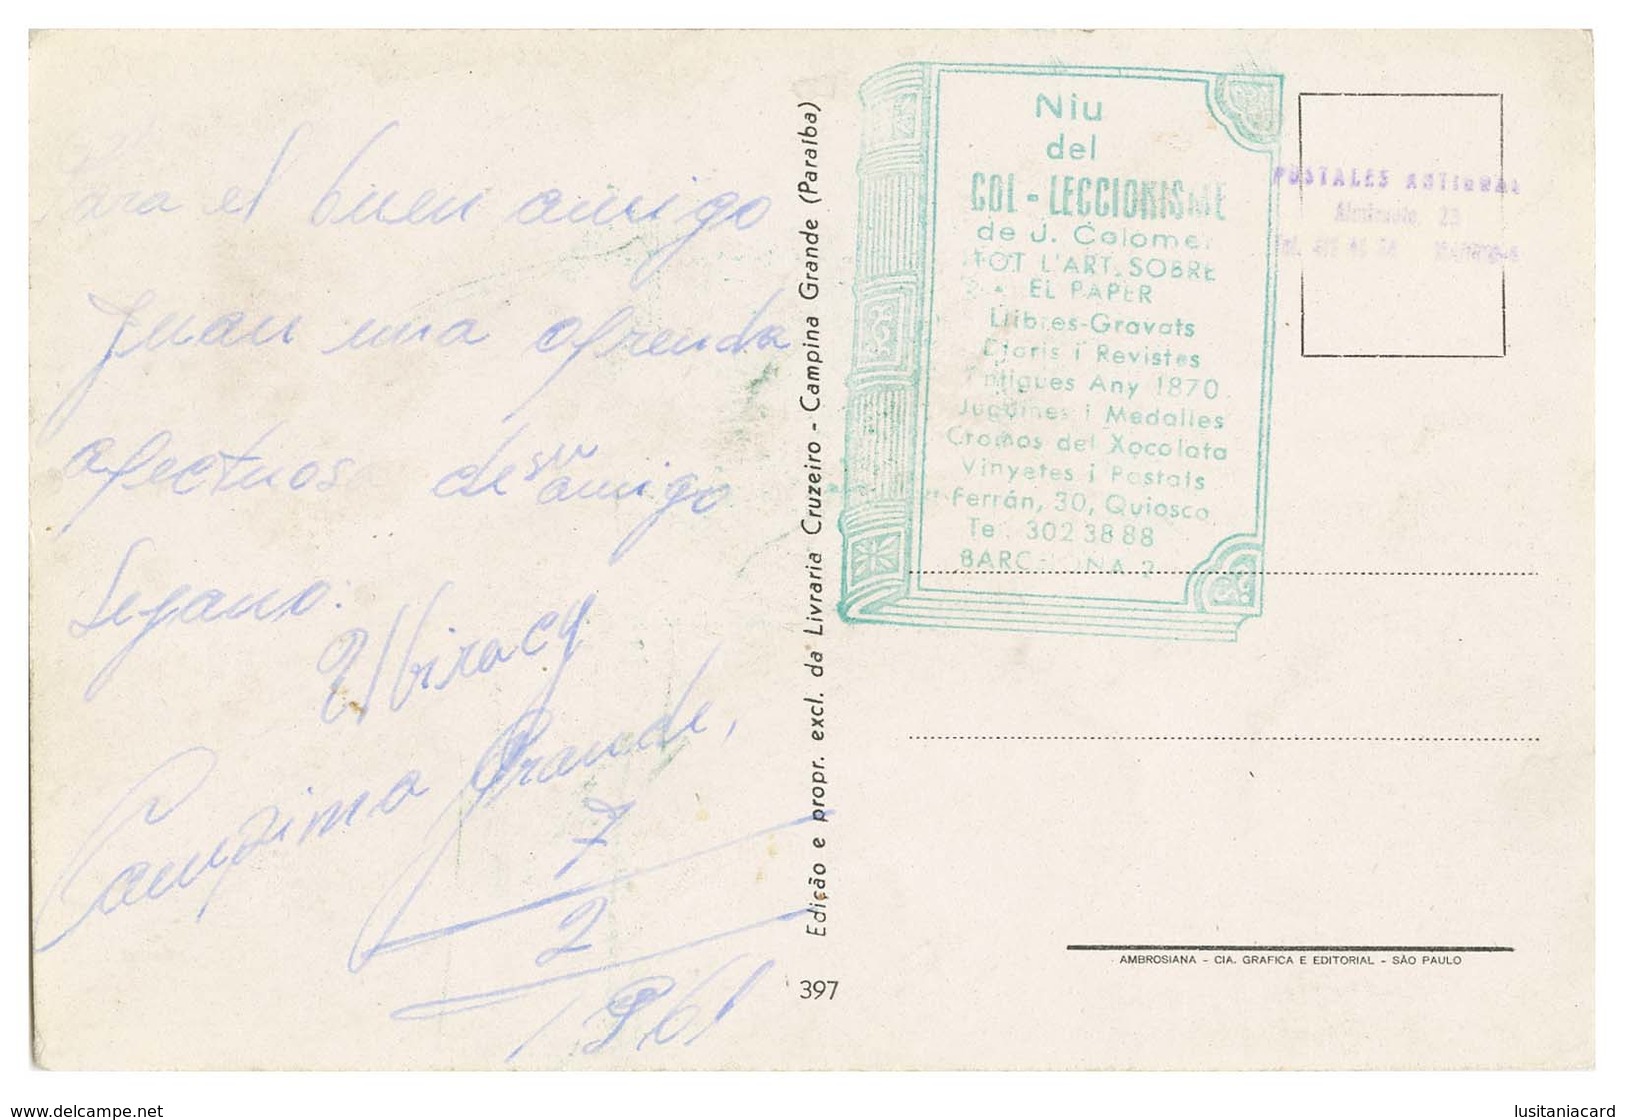 Para el buen amigo
Juan una ofrenda
afectuosa de su amigo
Lejano.
Ubiracy
Campina Grande,
7
2
1961
Edição e propr. excl. da Livraria Cruzeiro - Campina Grande (Paraíba)
397
Niu
del
COL-LECCIONISME
de J. Colomer
TOT L'ART. SOBRE
EL PAPER
Llibres-Gravats
Diaris i Revistes
Antiques Any 1870
Juguines i Medalles
Cromos del Xocolata
Vinyetes i Postals
Ferrán, 30, Quiosco
Tel. 302 38 88
BARCELONA 2
POSTALES
23
AMBROSIANA - CIA. GRAFICA E EDITORIAL - SÃO PAULO
www.delcampe.net
lusitaniacard